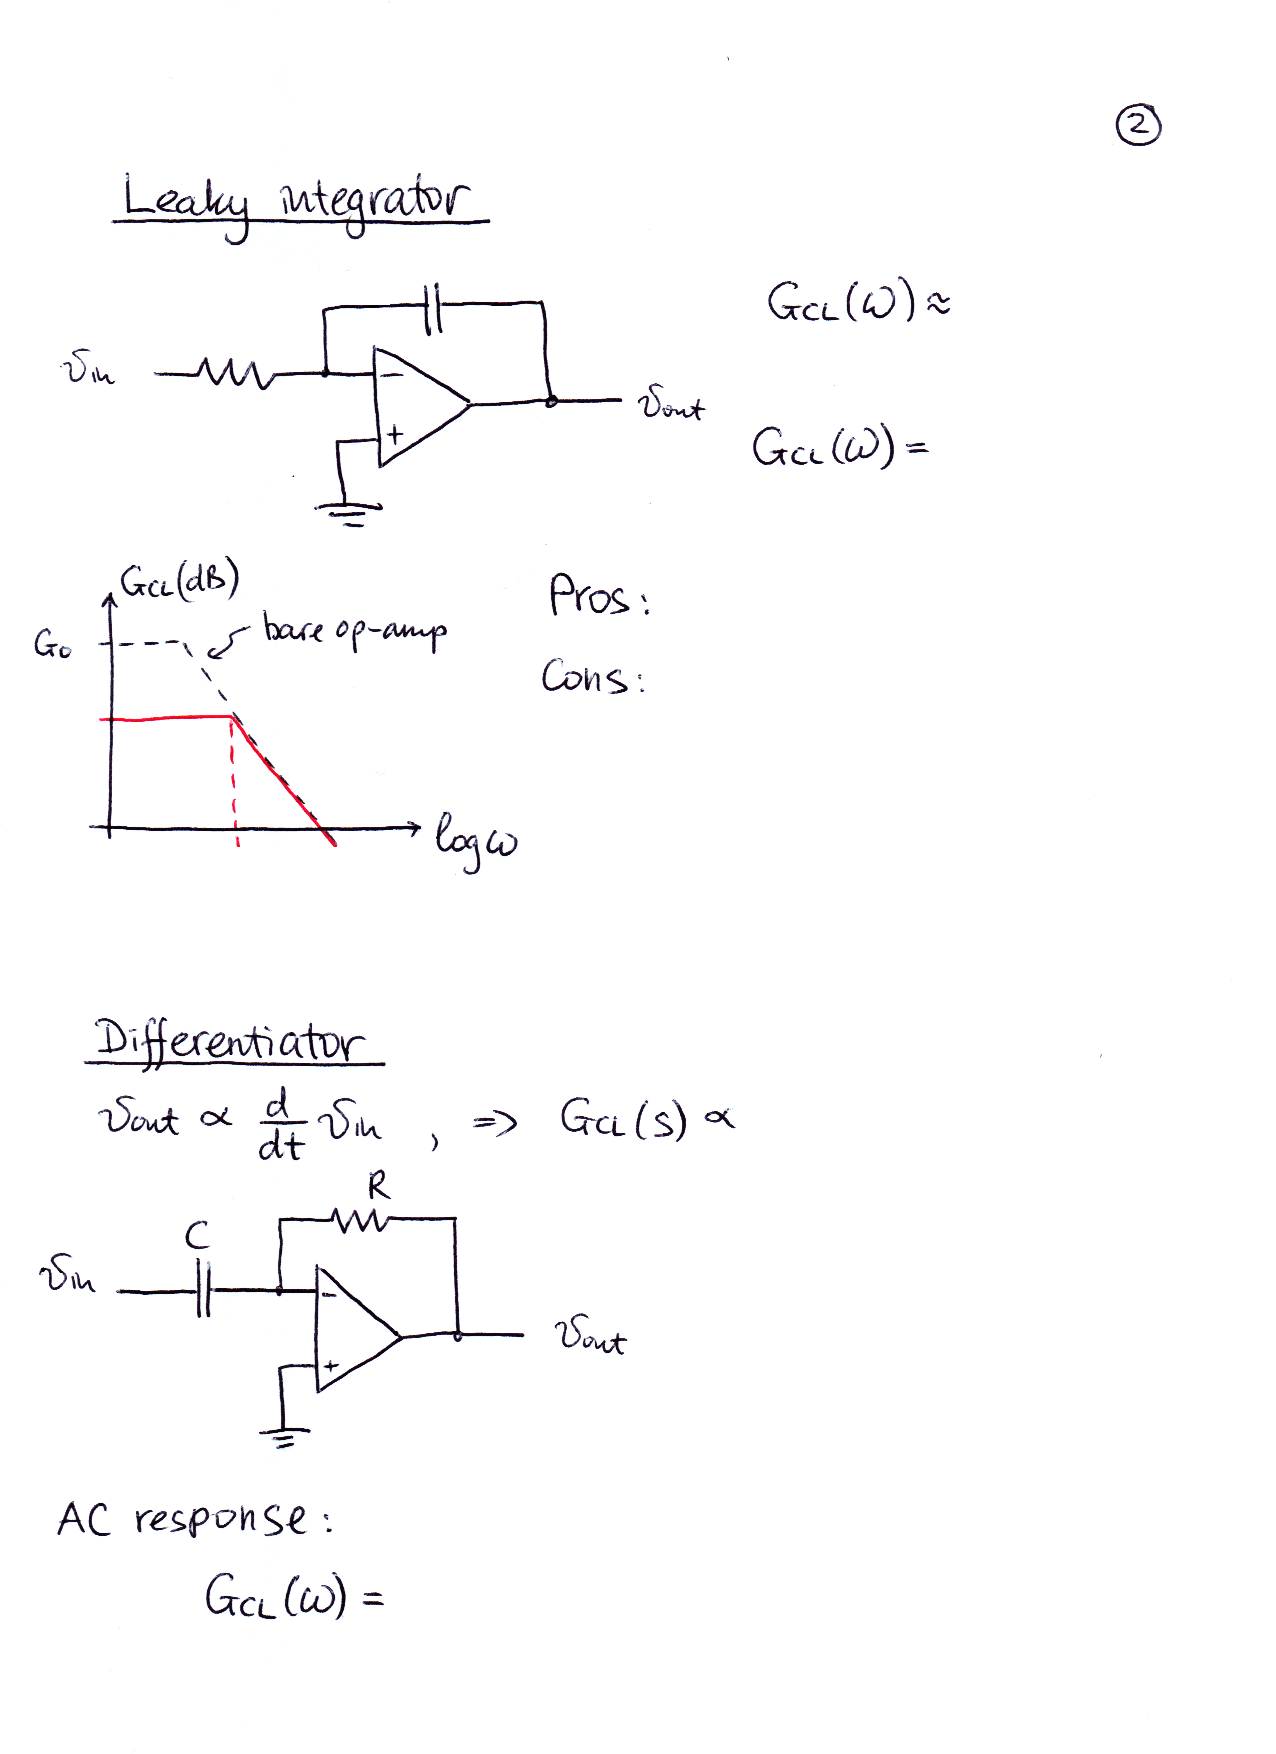 2
Leaky integrator
G_CL(ω) ≈
v_in
−
+
v_out
G_CL(ω) =
G_CL(dB)
G_0
bare op-amp
Pros:
Cons:
log ω
Differentiator
v_out ∝ d/dt v_in , => G_CL(s) ∝
R
C
v_in
−
+
v_out
AC response:
G_CL(ω) =